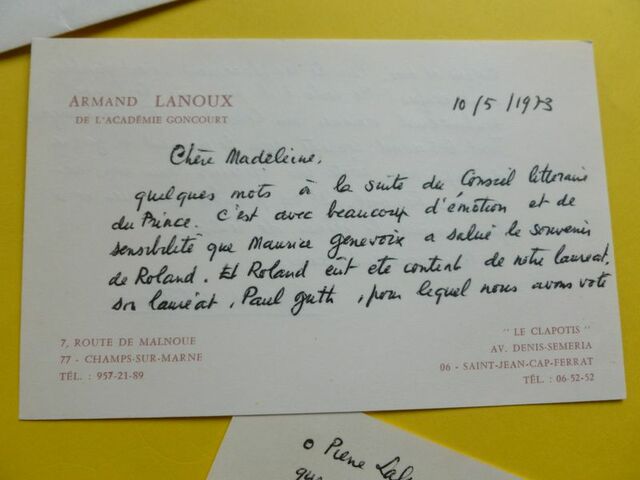 ARMAND LANOUX
DE L'ACADÉMIE GONCOURT
10/5/1973
Chère Madeleine,
quelques mots à la suite du Conseil litteraire
du Prince. C'est avec beaucoup d'émotion et de
sensibilité que Maurice Genevoix a salué le souvenir
de Roland. Et Roland eût ete content de notre laureat,
son lauréat, Paul Guth, pour lequel nous avons voté
7, ROUTE DE MALNOUE
77 - CHAMPS-SUR-MARNE
TÉL. : 957-21-89
" LE CLAPOTIS "
AV. DENIS-SEMERIA
06 - SAINT-JEAN-CAP-FERRAT
TÉL. : 06-52-52